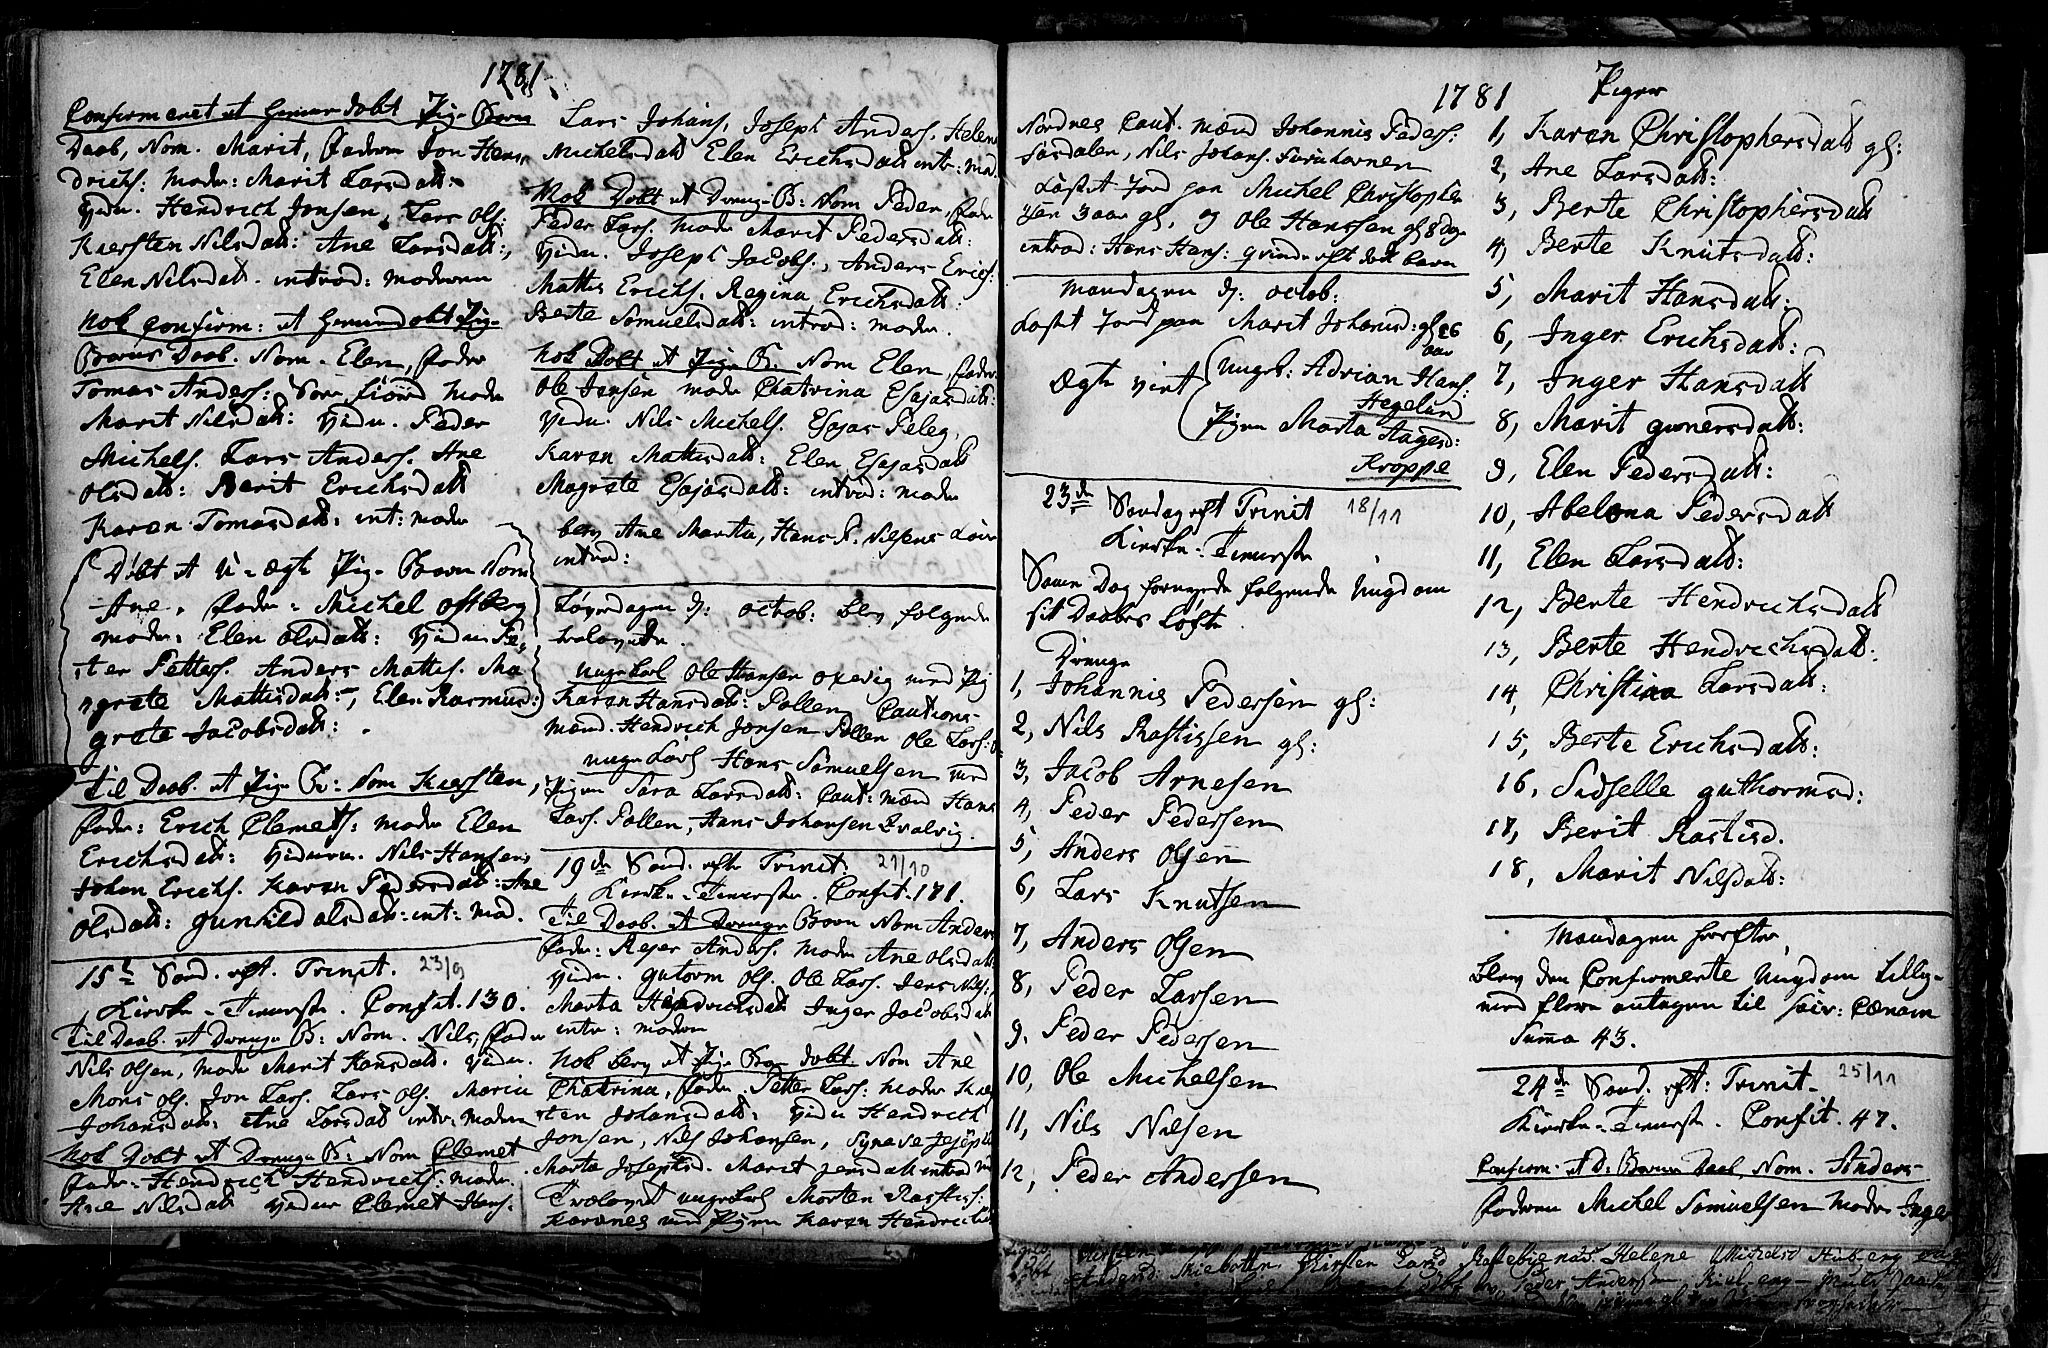 1781.
Confirmeret et hiemedøbt Pige-Barns
Daab, Nom. Marit, faderen Jon Hen-
drichs: moder: Marit Larsdatt:
Vidn. Hendrich Jonsen, Lars Ols:
Kiersten Nilsdatt: Ane Larsdatt:,
Elen Nilsdatt. introd: moderen
Nok Confirm: et hiemedøbt Pige-
Barns Daab. Nom. Elen, fader
Tomas Anders: Sør fiord moder
Marit Nilsdatt: Vidn. Peder
Michels. Lars Anders. Ane
Olsdatt: Berit Erichsdatt
Karen Tomasdatt: int: moder
Døbt et U-ægte Pige-Barn Nom
Ane. fader: Michel Ostberg
moder: Elen Olsdatt: Vidne Pe-
ter Petters. Anders Mattis. Ma-
grete Mattisdatt:, Elen Rasmusd:
grete Jacobsdatt:
Til Daab. et Pige B: Nom Kiersten,
fader: Erich Clemets: moder Elen
Erichsdatt: Vidnerne. Nils Hansen
Johan Erichs. Karen Pedersdatt: Ane
Olsdatt: Gunhild Olsdatt: int: mod.
15de Sønd. eft. Trinit. 23/9
Kirke-Tieneste. Confit. 130.
Til Daab. et Drenge B: Nom. Nils, fader
Nils Olsen, moder Marit Hansdatt. Vidn.
Mons Ols. Jon Lars. Lars Ols. Maria
Johansdatt: Ane Larsdatt intr: moderen
Nok Døbt et Drenge B: Nom Clemet
fader: Hendrich Hendrichs: moder.
Ane Nilsdatt Vidne Clemet Hans.
Lars Johans, Joseph Anders. Helena
Michelsdatt Elen Erichsdatt intr: mod.
Nok Døbt et Drenge-B: Nom Peder, fader
Peder Lars. moder Marit Pedersdatt:
Vidn. Joseph Jacobs., Anders Erics:
Mattis Erichs. Regina Erichsdatt:
Berte Samuelsdatt: introd: moder.
Nok Døbt et Pige B. Nom Elen, fader
Ole Jonsen moder Chatrina Esajasdatt:
Vidn. Nils Michels. Esajas Peleg,
Karen Mattisdatt: Elen Esajasdatt
Magrete Esajasdatt: introd: moder
berg Ane Martha, Hans P. Nilsens
introd:
Løverdagen d: octob: blev følgende
trolovede.
Unge Karl Ole Hansen med Pig
Karen Hansdatt: Pollen Cautions-
mænd. Hendrich Jonsen Pollen Ole Lars:
Unge Karl Hans Samuelsen med
Pigen Sara Larsdatt: Caut: mænd Hans
Lars. Pollen, Hans Johansen Qvalvig.
19de Sønd. efter Trinit. 21/10
Kirke-Tieneste. Confit. 171.
Til Daab. et Drenge Barn Nom Anders
fader: Rejer Anders. moder Ane Olsdatt
Vidn. Gutorm Ols. Ole Lars. Jens Nils:
Marta Hendrichsdatt Inger Jacobsdatt
intr: moderen
Nok blev et Pige Barn døbt Nom Ane
Chatrina, fader. Petter Lars: moder Kier
sten Johansdatt: Vidn Hendrich
Jonsen, Nils Johansen, Synave Joseph
Marta Josephsd. Marit Jensdatt introd m
Trolovet Unge Karl Morten Rasttis:
Karvnes med Pigen Karen Hendrichsd
1781
Nordnes Caut. mænd Johannis Peders:
Føsdalen, Nils Johans. Furuhovnen
Kastet Jord paa Michel Christophe
rsen 3 aar gl, og Ole Hanssen gl 8 dage
introd: Hans Hans: qvinde eft død barn
Mandagen d: octob:
Kastet Jord paa Marit Johansd: gl 26
aar
Ægte viet Ungk: Adrian Hans:
Hegelund
Pigen Marta Aagesd:
Kroppe
23de Søndag eft Trinit 18/11
Kirke-Tieneste
Samme Dag fornyede følgende Ungdom
sit Daabes Løfte.
Drenge
1, Johannis Pedersen gl:
2, Nils Rastissen gl:
3, Jacob Arnesen
4, Peder Pedersen
5, Anders Olsen
6, Lars Knutsen
7, Anders Olsen
8, Peder Larsen
9. Peder Pedersen
10, Ole Michelsen
11, Nils Nilsen
12, Peder Andersen
Piger
1, Karen Christophersdatt gl:
2, Ane Larsdatt:
3, Berte Christophersdatt
4, Berte Knutsdatt:
5, Marit Hansdatt:
6, Inger Erichsdatt:
7, Inger Hansdatt
8, Marit Gunersdatt:
9, Elen Pedersdatt:
10, Abelona Pedersdatt
11, Elen Larsdatt:
12, Berte Hendrichsdatt
13, Berte Hendrichsdatt:
14, Christina Larsdatt:
15, Berte Erichsdatt:
16, Sidselle Guthormsd:
17, Berit Rastisd.
18, Marit Nilsdatt:
Mandagen herefter
blev den Confirmerte Ungdom tillige
med flere antagen til Sacr: Cænam
Suma 43.
24de Sønd. eft: Trinit. 25/11
Kirke-Tieneste. Confit. 47.
Confirm: et D: Barns Daab, Nom. Anders-
faderen Michel Samuelsen moder Inger
Kirsten Larsd Helene Michelsd
Peder Andersen